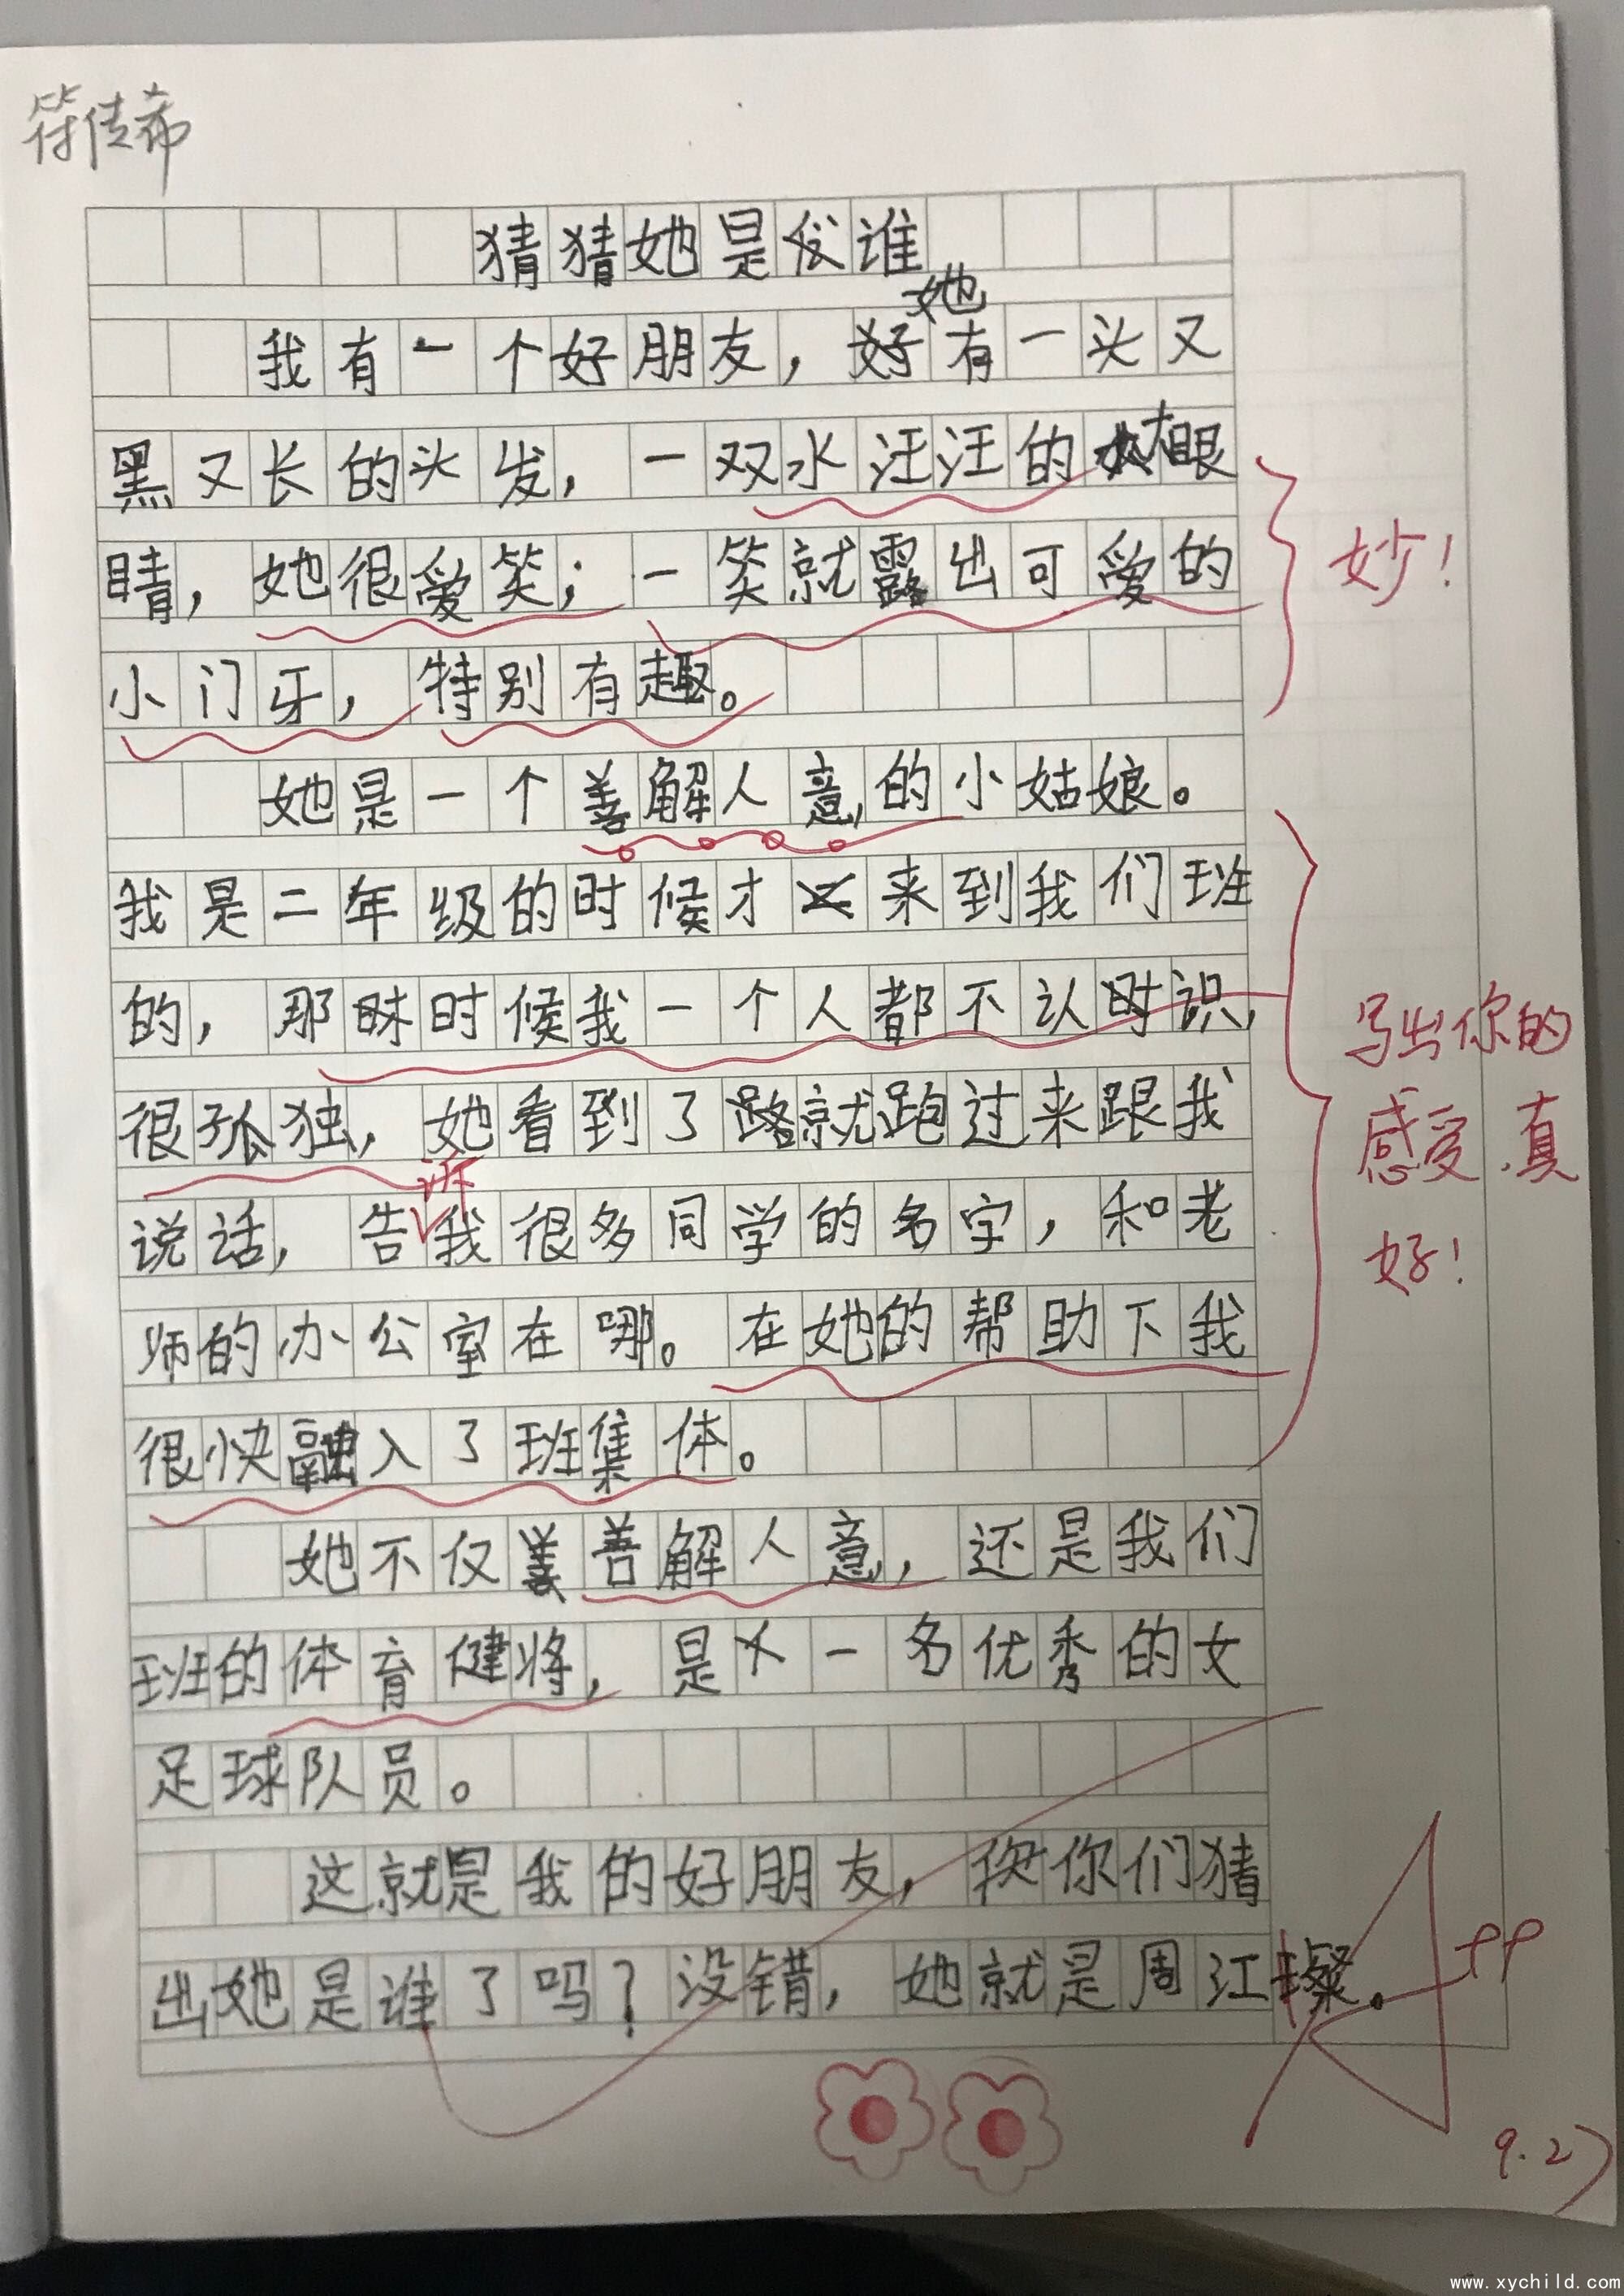 符传希
猜猜她是谁
她
我有一个好朋友，好有一头又
黑又长的头发，一双水汪汪的大眼
睛，她很爱笑；一笑就露出可爱的
妙！
小门牙，特别有趣。
她是一个善解人意的小姑娘。
我是二年级的时候才来到我们班
的，那时候我一个人都不认识，
写出你的
很孤独，她看到了就跑过来跟我
感受，真
诉
说话，告我很多同学的名字，和老
好！
师的办公室在哪。在她的帮助下我
很快融入了班集体。
她不仅善解人意，还是我们
班的体育健将，是一名优秀的女
足球队员。
这就是我的好朋友，你们猜
出她是谁了吗？没错，她就是周江璨。
9.27
www.xychild.com